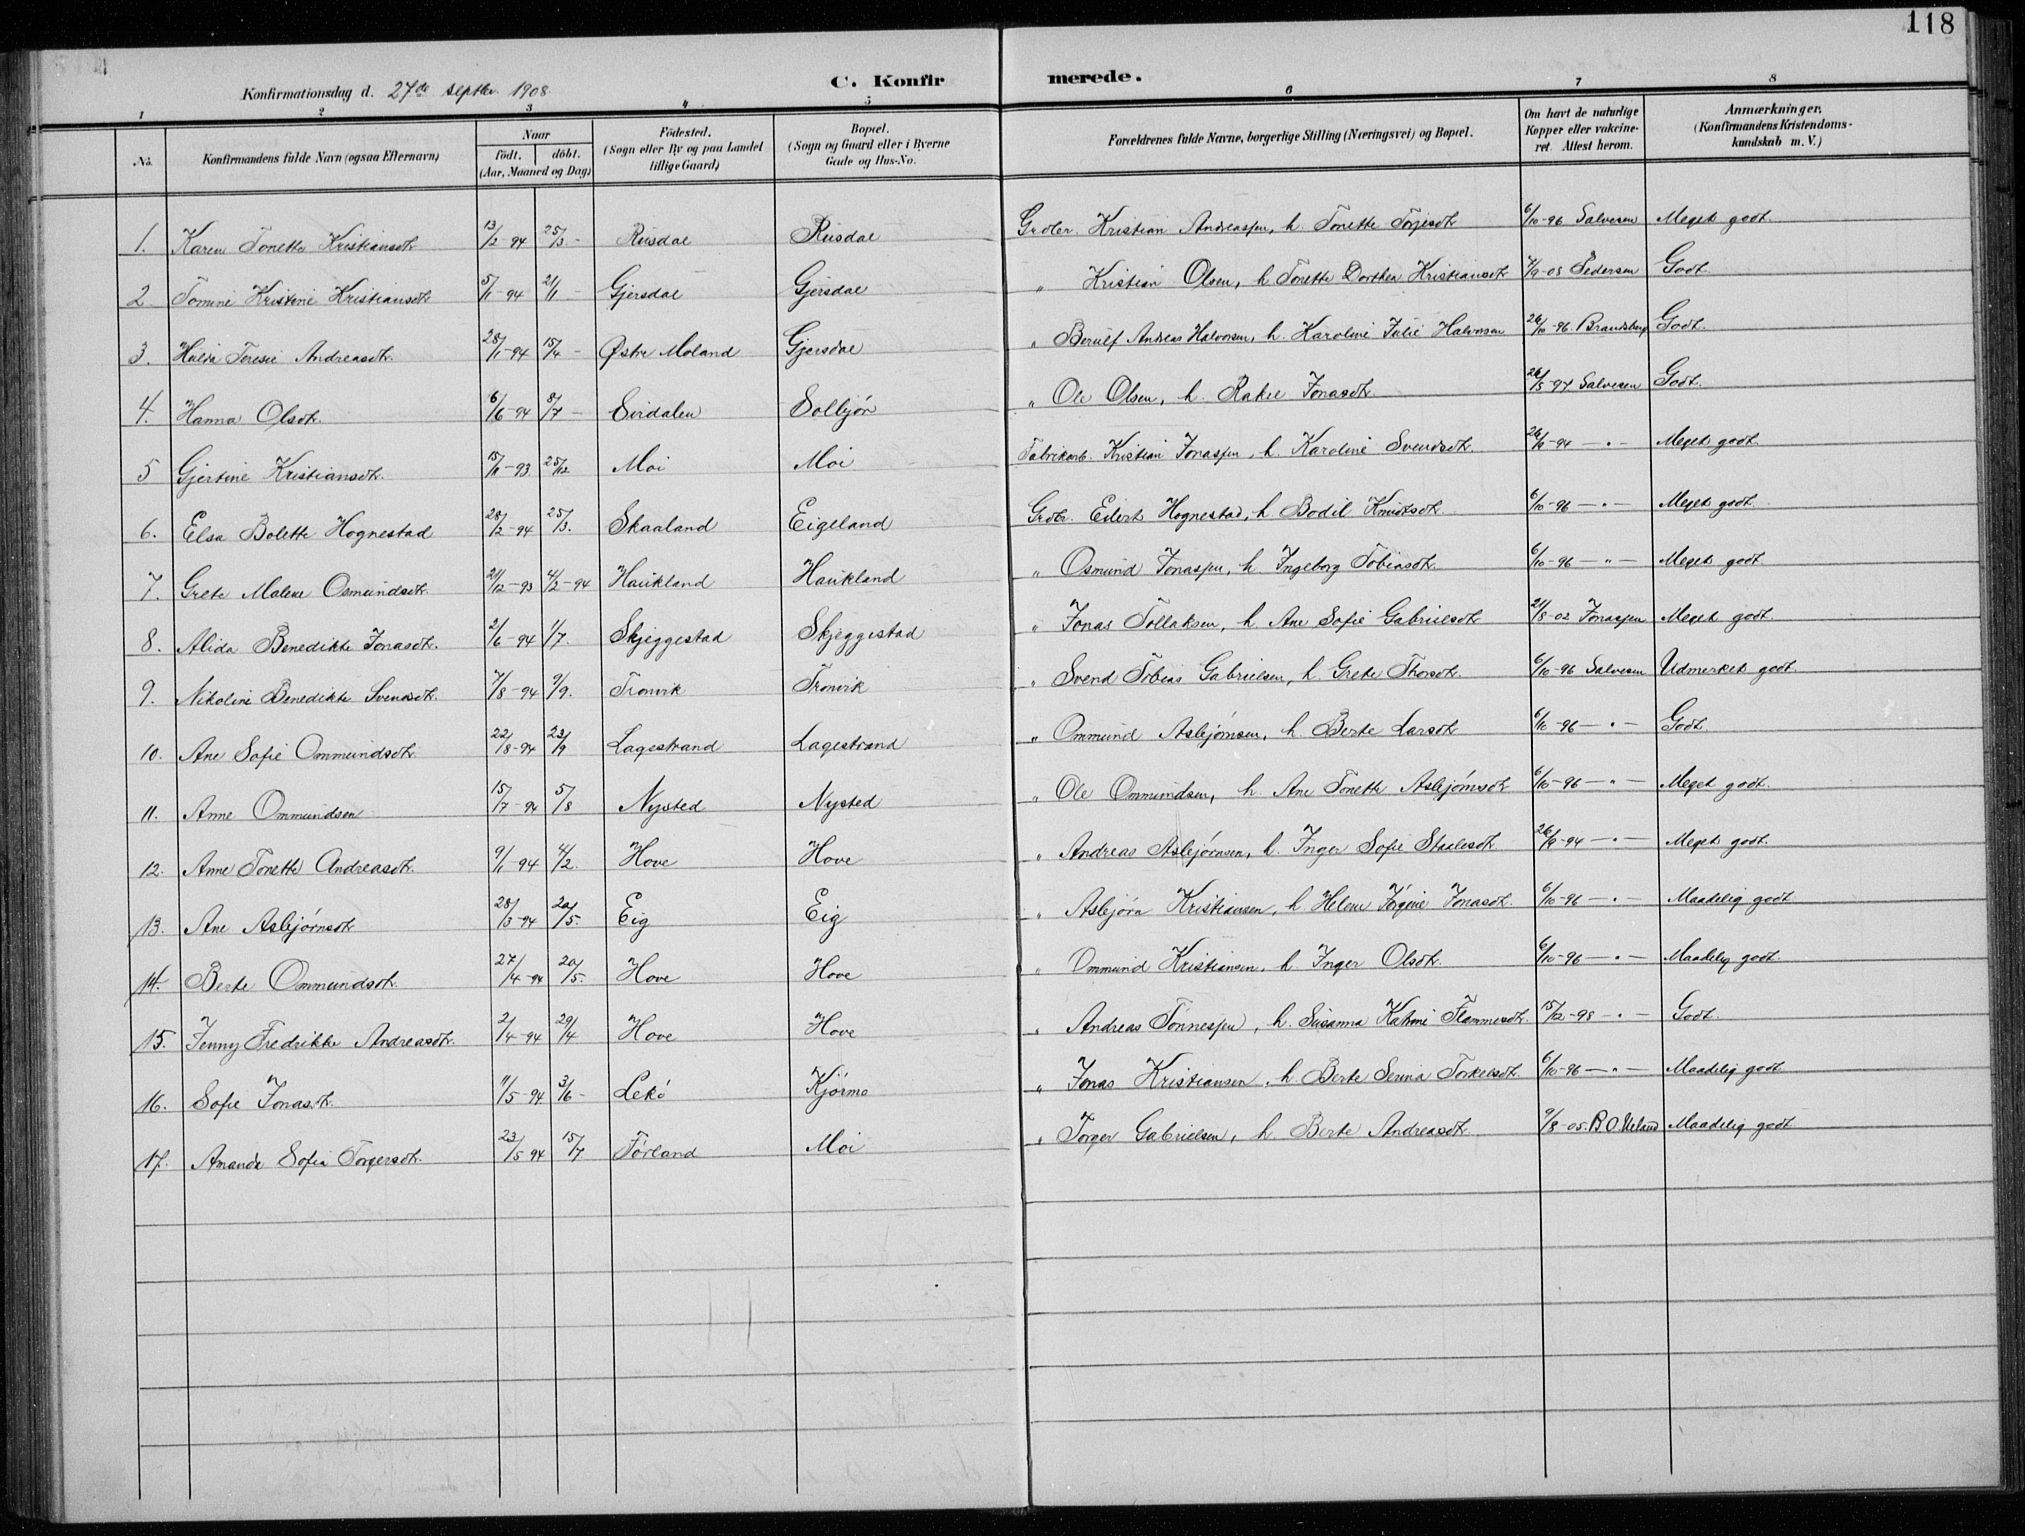 118
Konfirmationsdag d. 27de septbr. 1908
C. Konfirmerede.
1 2 3 4 5 6 7 8
No. Konfirmandens fulde Navn (ogsaa Efternavn) Naar födt. döbt. (Aar, Maaned og Dag) Födested. (Sogn eller By og paa Landet tillige Gaard) Bopæl. (Sogn og Gaard eller i Byerne Gade og Hus-No. Forældrenes fulde Navne, borgerlige Stilling (Næringsvei) og Bopæl. Om havt de naturlige Kopper eller vakcineret. Attest herom. Anmærkninger. (Konfirmandens Kristendomskundskab m. V.)
1. Karen Tonette Kristiansdtr. 13/2-94 25/3- Rusdal Rusdal Grdbr. Kristian Andreassen, h. Tonette Torjesdtr. 6/10-96 Salvesen Meget godt.
2 Tomine Kristine Kristiansdtr. 5/1-94 21/1- Gjersdal Gjersdal " Kristian Olsen, h. Tonette Dorthea Kristiansdtr. 7/9-08 Pedersen Godt.
3. Hulda Teresie Andreasdtr. 28/1-94 15/4- Østre Moland Gjersdal " Berulf Andreas Halvorsen, h. Karoline Julie Halvorsen 26/10-96. Brandsberg Godt.
4. Hanna Olsdtr. 6/6-94 8/7- Sirdalen Solbjør " Ole Olsen, h. Rakel Jonasdtr. 26/5-97 Salvesen Godt.
5 Gjertine Kristiansdtr. 15/11-93 25/12 Moi Moi Fabrikarb. Kristian Jonassen, h. Karoline Svendsdtr. 26/9-94 -"- Meget godt.
6. Elsa Bolette Hognestad 28/2-94 25/3. Skaaland Eigeland Grdbr. Eilert Hognestad, h. Bodil Knudsdtr. 6/10-96 -"- Meget godt.
7. Grete Malene Osmundsdtr. 21/12-93 4/2-94 Haukland Haukland " Osmund Jonassen, h. Ingeborg Tobiasdtr. 6/10-96 -"- Meget godt.
8. Alida Benedikte Jonasdtr. 2/6-94 1/7. Skjeggestad Skjeggestad " Jonas Tollaksen, h. Ane Sofie Gabrielsdtr. 21/8-02 Jonassen Meget godt.
9. Nikoline Benedikte Svendsdtr. 7/8-94 9/9. Tronvik Tronvik " Svend Tobias Gabrielsen, h. Grete Thorsdtr. 6/10-96 Salvesen Udmerket godt.
10. Ane Sofie Ommundsdtr. 22/8-94 23/9 Lagestrand Lagestrand " Ommund Asbjørnsen, h. Berte Larsdtr. 6/10-96 -"- Godt.
11. Anne Ommundsen 15/7-94 5/8 Nysted Nysted " Ole Ommundsen, h. Ane Tonette Asbjørnsdtr. 6/10-96 -"- Meget godt.
12. Anne Tonette Andreasdtr. 9/1-94 4/2. Hove Hove " Andreas Asbjørnsen, h. Inger Sofie Staalesdtr. 26/9-94 -"- Meget godt.
13. Ane Asbjørnsdtr. 28/3-94 20/5. Eig Eig " Asbjørn Kristiansen, h. Helene Jørgine Jonasdtr. 6/10-96 -"- Maadelig godt
14. Berte Ommundsdtr. 27/4-94 20/5. Hove Hove " Ommund Kristiansen, h. Inger Olsdtr. 6/10-96 -"- Maadelig godt.
15. Jenny Fredrikke Andreasdtr. 2/4-94 29/4 Hove Hove " Andreas Tønnessen, h. Susanna Katrine Flammesdtr. 15/2-98 -"- Godt.
16. Sofie Jonasdtr. 11/5-94 3/6- Lekø Kjørmo " Jonas Kristiansen, h. Berte Serina Torkelsdtr. 6/10-96 -"- Maadelig godt
17. Amanda Sofie Torgersdtr. 23/5-94 15/7 Førland Moi " Torger Gabrielsen, h. Berte Andreasdtr. 9/8-05. B. O. Ueland Maadelig godt